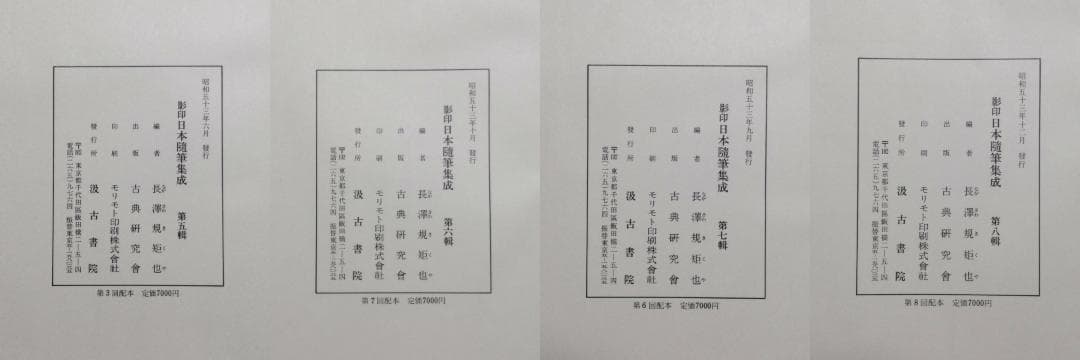 昭和五十三年六月 發行
影印日本隨筆集成 第五輯
編者 長澤規矩也
ながさわきくや
出版 古典研究會
印刷 モリモト印刷株式會社
發行所 汲古書院
〒102 東京都千代田區飯田橋二―五―四
電話(二六五)九七六四
第3回配本 定価7000円
昭和五十三年十月 發行
影印日本隨筆集成 第六輯
編者 長澤規矩也
ながさわきくや
出版 古典研究會
印刷 モリモト印刷株式會社
發行所 汲古書院
〒102 東京都千代田區飯田橋二―五―四
電話(二六五)九七六四
第7回配本 定価7000円
昭和五十三年九月 發行
影印日本隨筆集成 第七輯
編者 長澤規矩也
ながさわきくや
出版 古典研究會
印刷 モリモト印刷株式會社
發行所 汲古書院
〒102 東京都千代田區飯田橋二―五―四
電話(二六五)九七六四
第6回配本 定価7000円
昭和五十三年十二月 發行
影印日本隨筆集成 第八輯
編者 長澤規矩也
ながさわきくや
出版 古典研究會
印刷 モリモト印刷株式會社
發行所 汲古書院
〒102 東京都千代田區飯田橋二―五―四
電話(二六五)九七六四
第8回配本 定価7000円